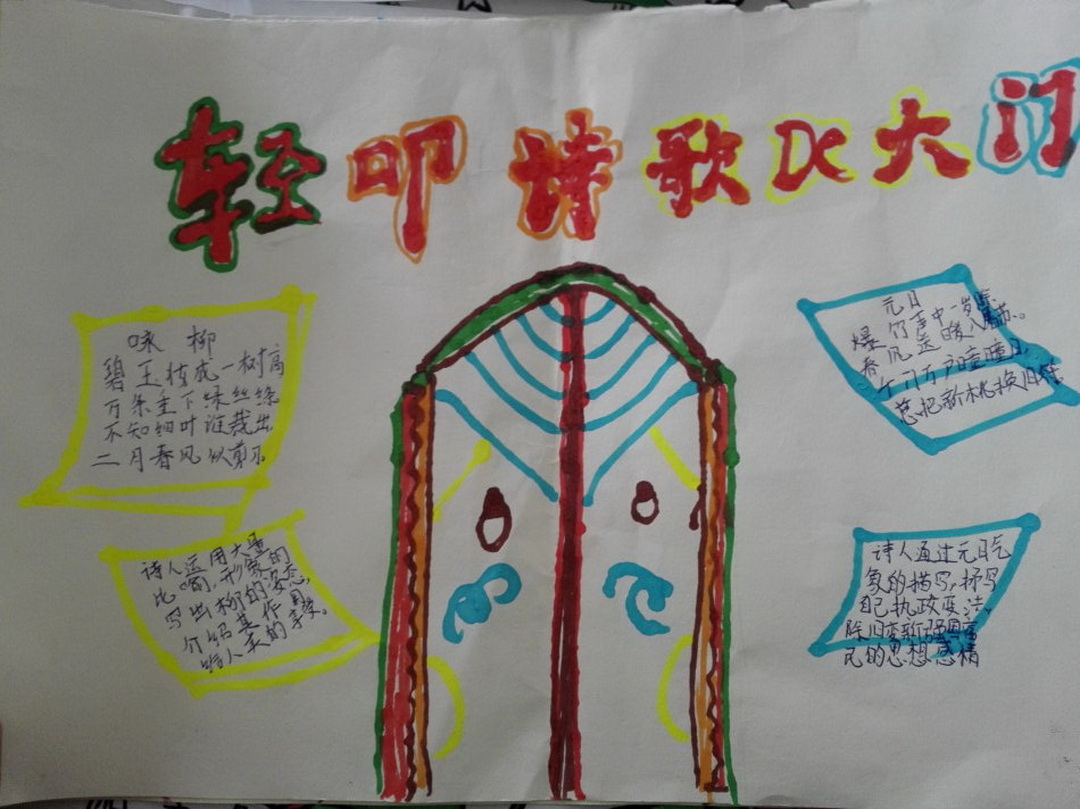 轻叩诗歌DC大门
咏 柳
碧玉妆成一树高
万条垂下绿丝绦
不知细叶谁裁出
二月春风似剪刀
诗人运用大量
比喻,形象的
写出柳的姿态,
介绍其作用
给人美的享受。
元日
爆竹声中一岁除
春风送暖入屠苏。
千门万户曈曈日,
总把新桃换旧符
诗人通过元日气
象的描写,抒写
自己执政变法、
除旧革新强国富
民的思想感情